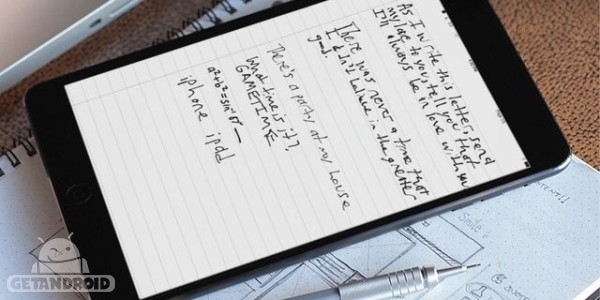 As I write this letter, send
my love to you & tell you that
I'll always be in love with you
There was never a time that
I didn't believe in the greater
good.
There's a party at my house
What time is it??
GAMETIME
iphone ipad
GETANDROID